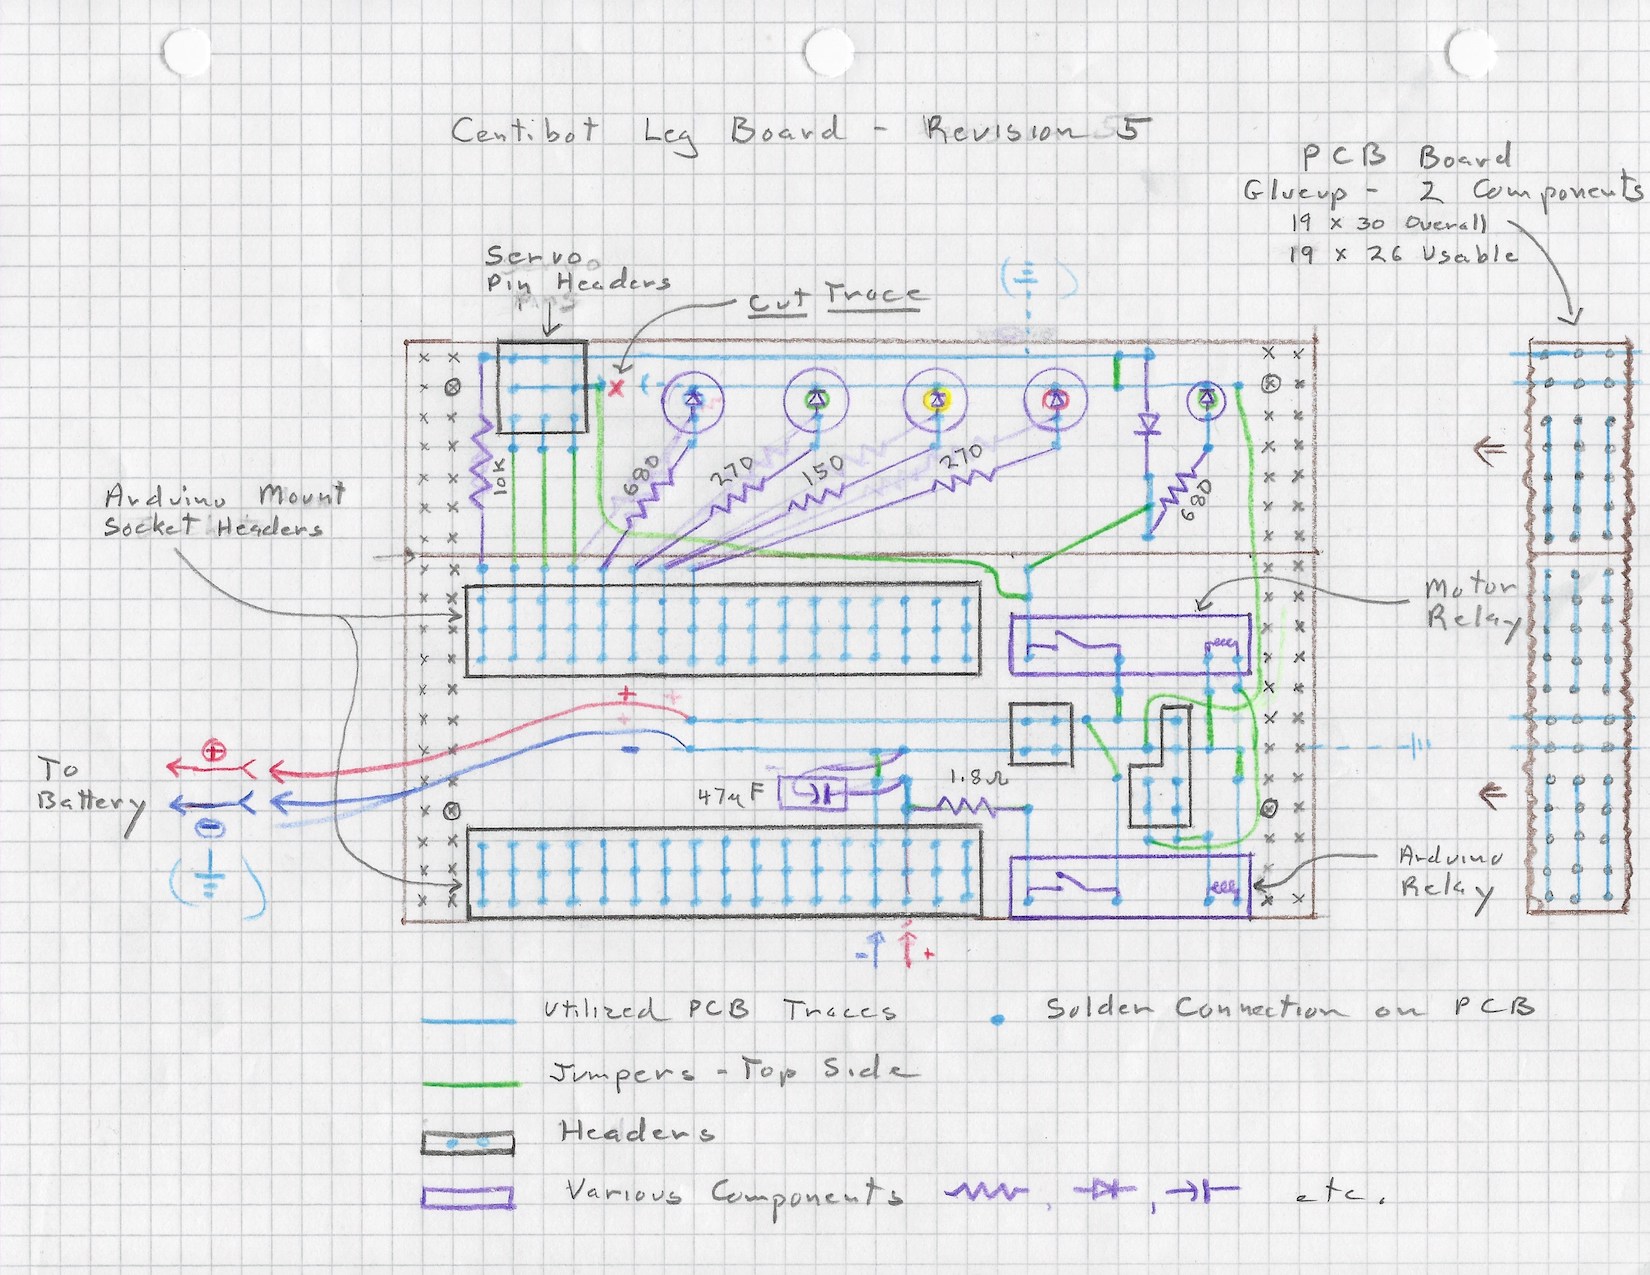 Centibot Leg Board - Revision 5
PCB Board
Glueup - 2 Components
19 x 30 Overall
19 x 26 Usable
Servo
Pin Headers
Cut Trace
10K
680
270
150
270
680
Arduino Mount
Socket Headers
Motor
Relay
+
-
+
To
Battery
-
47uF
1.8Ω
Arduino
Relay
- +
Utilized PCB Traces
Solder Connection on PCB
Jumpers - Top Side
Headers
Various Components , , etc.